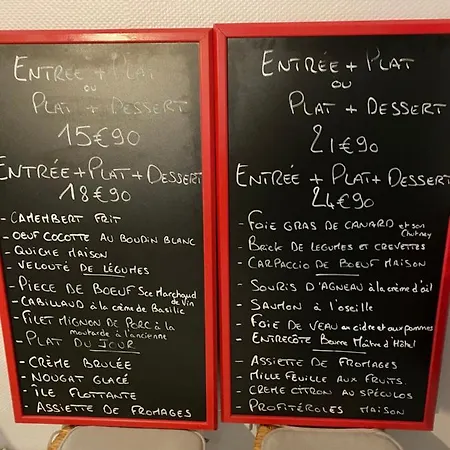 ENTRÉE + PLAT
OU
PLAT + DESSERT
15€90
ENTRÉE + PLAT + DESSERT
18€90
- CAMEMBERT FRIT
- OEUF COCOTTE AU BOUDIN BLANC
- QUICHE MAISON
- VELOUTÉ DE LÉGUMES
- PIECE DE BOEUF Sce Marchand
de Vin
- CABILLAUD à la crème de Basilic
- FILET MIGNON DE PORC à la
moutarde à l'ancienne
- PLAT DU JOUR
- CRÈME BRULÉE
- NOUGAT GLACÉ
- ÎLE FLOTTANTE
- ASSIETTE DE FROMAGES
ENTRÉE + PLAT
OU
PLAT + DESSERT
21€90
ENTRÉE + PLAT + DESSERT
24€90
- FOIE GRAS DE CANARD et son
Chutney
- BRICK DE LEGUMES ET CREVETTES
- CARPACCIO DE BOEUF MAISON
- SOURIS D'AGNEAU à la crème d'ail
- SAUMON à l'oseille
- FOIE DE VEAU au cidre et aux pommes
- ENTRECÔTE Beurre Maître d'Hôtel
- ASSIETTE DE FROMAGES
- MILLE FEUILLE AUX FRUITS.
- CREME CITRON AU SPÉCULOS
- PROFITÉROLES MAISON